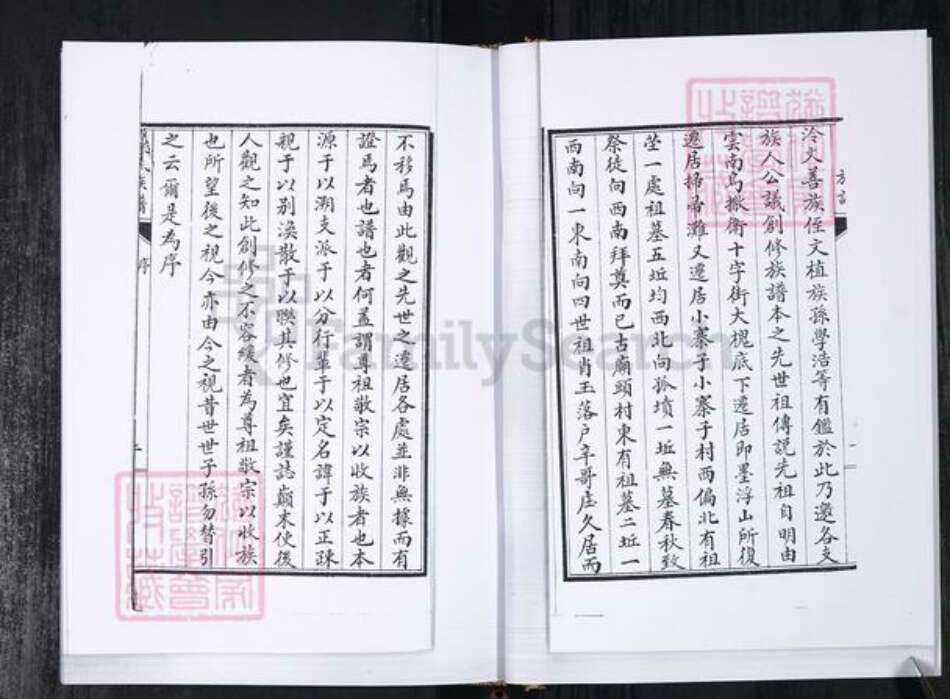 泠文善族侄文植族孫學浩等有鑑於此乃邀各支
族人公議創修族譜本之先世祖傳說先祖自明由
雲南烏撒衛十字街大槐底下遷居即墨浮山所復
遷居掃帚灘又遷居小寨子小寨子村西偏北有祖
塋一處祖墓五坵均西北向孤墳一坵無墓春秋致
祭徒向西南拜奠而已古廟頭村東有祖墓二坵一
西南向一東南向四世祖肖玉落户辛哥庄久居而
不移焉由此觀之先世之遷居各處並非無據而有
證焉者也譜也者何蓋謂尊祖敬宗以收族者也本
源于以溯支派于以分行輩于以定名諱于以正疎
親于以别渙散于以聯其修也宜矣謹誌巔末使後
人觀之知此創修之不容緩者為尊祖敬宗以收族
也所望後之視今亦由今之視昔世世子孫勿替引
之云爾是為序
氏族譜
序
FamilySearch